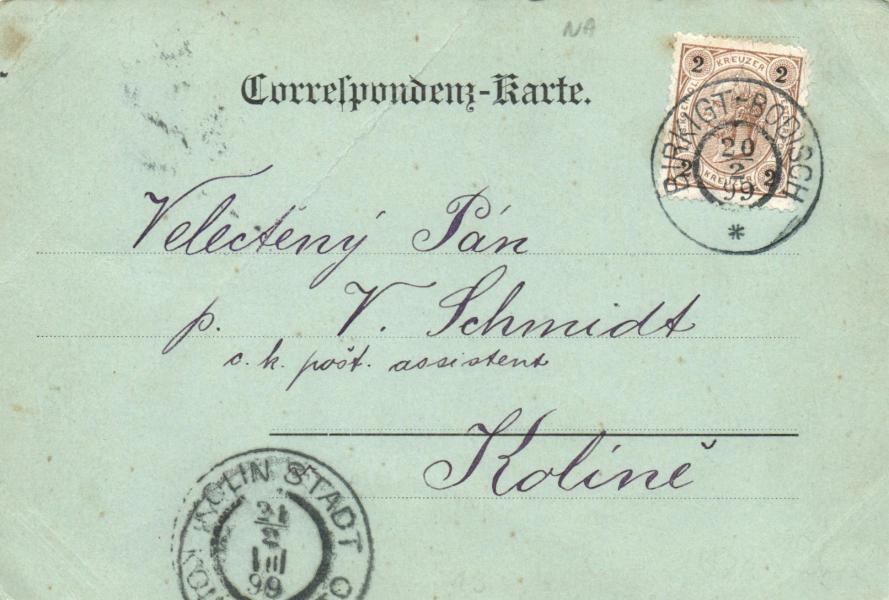 NA
Correspondenz-Karte.
2 KREUZER 2
2 KREUZER 2
BIRKIGT-BÖDISCH
20
2
99
*
Velectěný Pán
p. V. Schmidt
c. k. pošt. assistent
Kolíně
KOLIN STADT
21
2
III
99